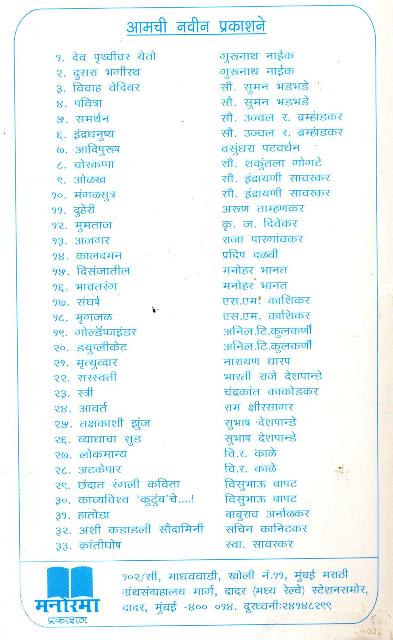 आमची नवीन प्रकाशने
१. देव पृथ्वीवर येतो गुरुनाथ नाईक
२. दुसरा भगीरथ गुरुनाथ नाईक
३. विवाह वेदिवर सौ. सुमन भडभडे
४. पवित्रा सौ. सुमन भडभडे
५. समर्थन सौ. उज्वल र. ब्रम्हांडकर
६. इंद्रधनुष्य सौ. उज्वल र. ब्रम्हांडकर
७. आदिपुरूष वसुंधरा पटवर्धन
८. चोरकप्पा सौ. शकुंतला गोगटे
९. ओळख सौ. इंद्रायणी सावरकर
१०. मंगळसुत्र सौ. इंद्रायणी सावरकर
११. दुहेरी अरूण ताम्हणकर
१२. मुमताज कृ. ज. दिवेकर
१३. अजगर राजा पारगांवकर
१४. कालदमन प्रदिप दळवी
१५. दिसंजातील मनोहर भानत
१६. भावतरंग मनोहर भानत
१७. संघर्ष एस.एम. काशिकर
१८. मृगजळ एस.एम. काशिकर
१९. गोल्डेंफाइंडर अनिल.टि.कुलकर्णी
२०. डयुप्लीकेट अनिल.टि.कुलकर्णी
२१. मृत्युव्दार नारायण धारप
२२. सरस्वती भारती राजे देशपान्डे
२३. स्त्री चंद्रकांत काकोडकर
२४. आवर्त राम क्षीरसागर
२५. तक्षकाशी झुंज सुभाष देशपान्डे
२६. व्याधाचा सुड सुभाष देशपान्डे
२७. लोकमान्य वि.र. काळे
२८. अटकेपार वि.र. काळे
२९. छंदात रंगली कविता विसुभाऊ बापट
३०. काव्यविश्व 'कुटुंब'चे....! विसुभाऊ बापट
३१. हातोडा बाबुराव अर्नाळकर
३२. अशी कडाडली सौदामिनी सचिन कानिटकर
३३. क्रांतीघोष स्वा. सावरकर
मनोरमा
प्रकाशन
१०२/सी, माधववाडी, खोली नं.११, मुंबई मराठी
ग्रंथसंग्रहालय मार्ग, दादर (मध्य रेल्वे) स्टेशनसमोर,
दादर, मुंबई -४०० ०१४. दूरध्वनी:२४१४८२९९